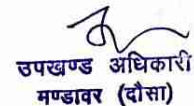 उपखण्ड अधिकारी
मण्डावर (दौसा)